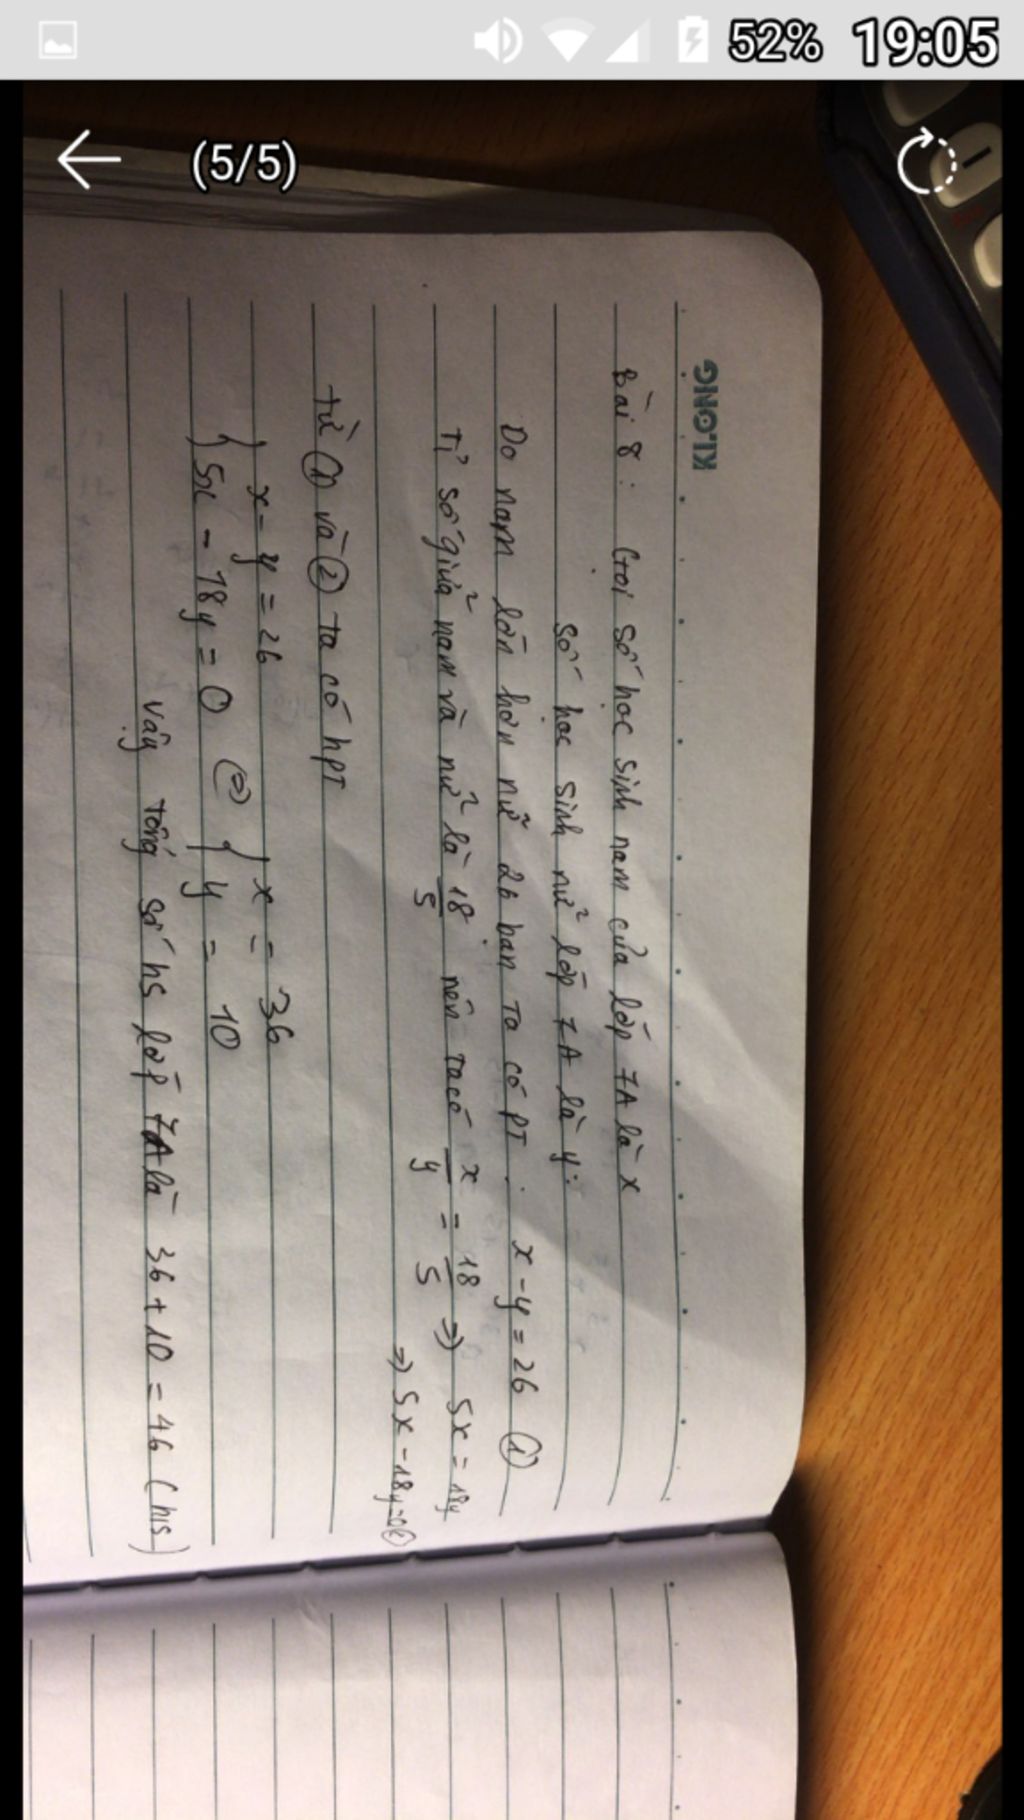 52% 19:05
(5/5)
KLONG
Bài 8: Gọi số học sinh nam của lớp 7A là x
số học sinh nữ lớp 7A là y:
Do nam lớn hơn nữ 26 bạn ta có PT: x - y = 26 (1)
Tỉ số giữa nam và nữ là 18/5 nên ta có x/y = 18/5 => 5x = 18y
=> 5x - 18y = 0 (2)
từ (1) và (2) ta có hPT
{ x - y = 26
5x - 18y = 0 (=) { x = 36
y = 10
vậy tổng số hs lớp 7A là 36 + 10 = 46 (his)